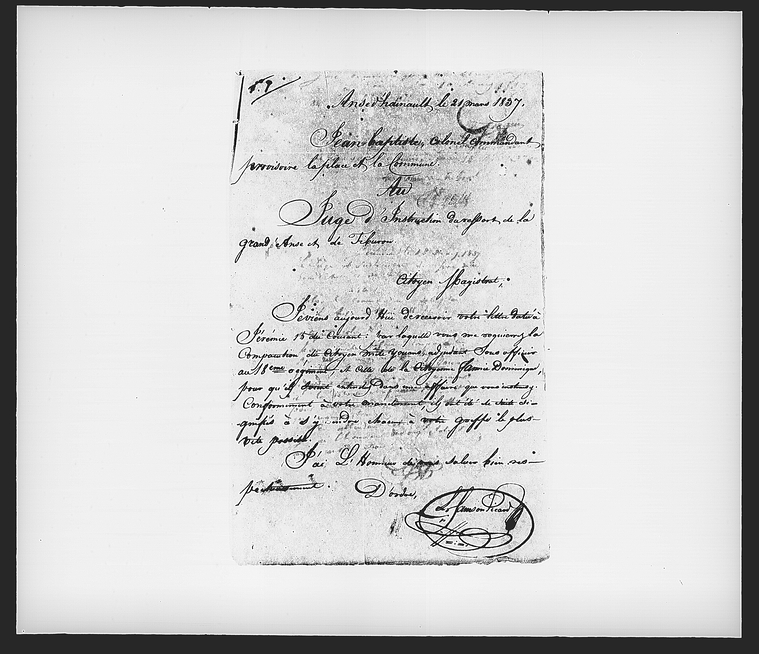 Anse d'hainault le 21 mars 1837.
Jean-baptiste, Colonel Commandant
provisoire la place et la Commune.
Au
Juge d'Instruction du ressort de la
grand'Anse et de Tiburon
Citoyen Magistrat,
Je viens aujourd'hui de recevoir votre lettre datée à
Jérémie 15 du Courant: par laquelle vous me requierrez la
Comparution du Citoyen adjudant Sous officier
au 18eme régiment, et Celle de la Citoyenne Dominique,
pour qu'ils soient dans une affaire que vous instruisez
Conformément à votre mandement ils ont été de suite si-
gnifiés à s'y rendre à votre greffe le plus-
vite possible.
J'ai L'Honneur de vous saluer bien res-
pectueusement.
D'ordre,